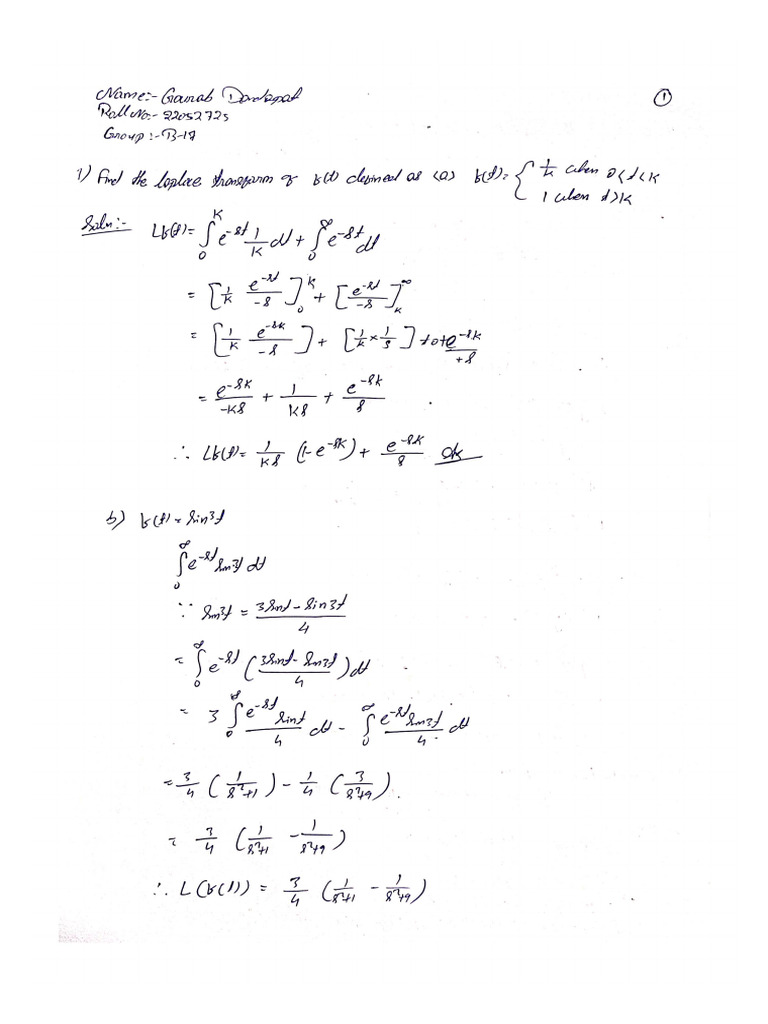 Name:- Gaurab
①
Roll No:- 22052725
Group :- B-17
1) Find the laplace transform of f(t) defined as (a) f(t)= { 1/k when 0<t<k
1 when t>k
Soln:- Lf(t)= ∫₀ᴷ e^-st 1/k dt + ∫₀^∞ e^-st dt
= [1/k e^-st/-s]₀ᵏ + [e^-st/-s]ₖ^∞
= [1/k e^-sk/-s] + [1/k × 1/s] +0+ e^-sk/+s
= e^-sk/-ks + 1/ks + e^-sk/s
∴ Lf(t)= 1/ks (1-e^-sk) + e^-sk/s
b) f(t) = sin³t
∫₀^∞ e^-st sin³t dt
∵ sin³t = 3sint - sin3t/4
= ∫₀^∞ e^-st (3sint - sin3t/4) dt
= 3 ∫₀^∞ e^-st sint/4 dt - ∫₀^∞ e^-st sin3t/4 dt
= 3/4 (1/s²+1) - 1/4 (3/s²+9).
= 3/4 (1/s²+1 - 1/s²+9)
∴ L(f(t)) = 3/4 (1/s²+1 - 1/s²+9)